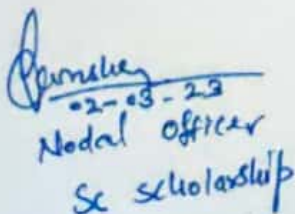 02-03-23
Nodal Officer
SC Scholarship